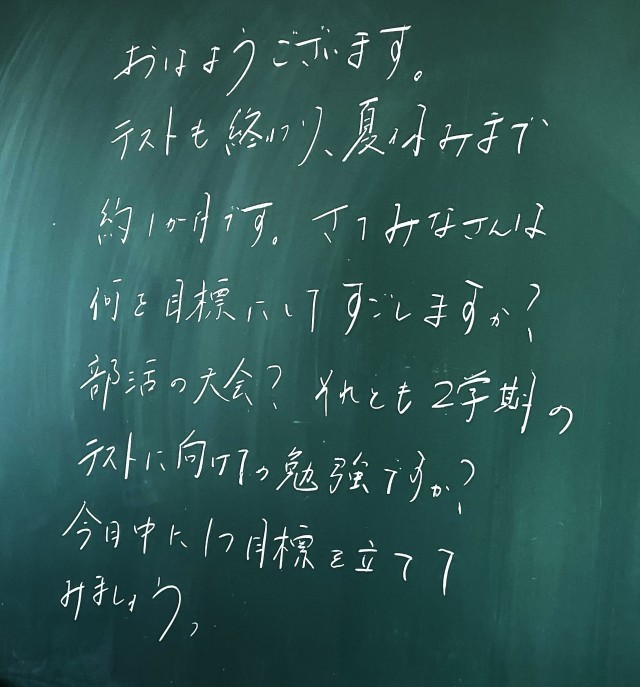 おはようございます。
テストも終わり、夏休みまで
約1か月です。さてみなさんは
何を目標にしてすごしますか?
部活の大会?それとも2学期の
テストに向けての勉強ですか?
今日中に1つ目標を立てて
みましょう。